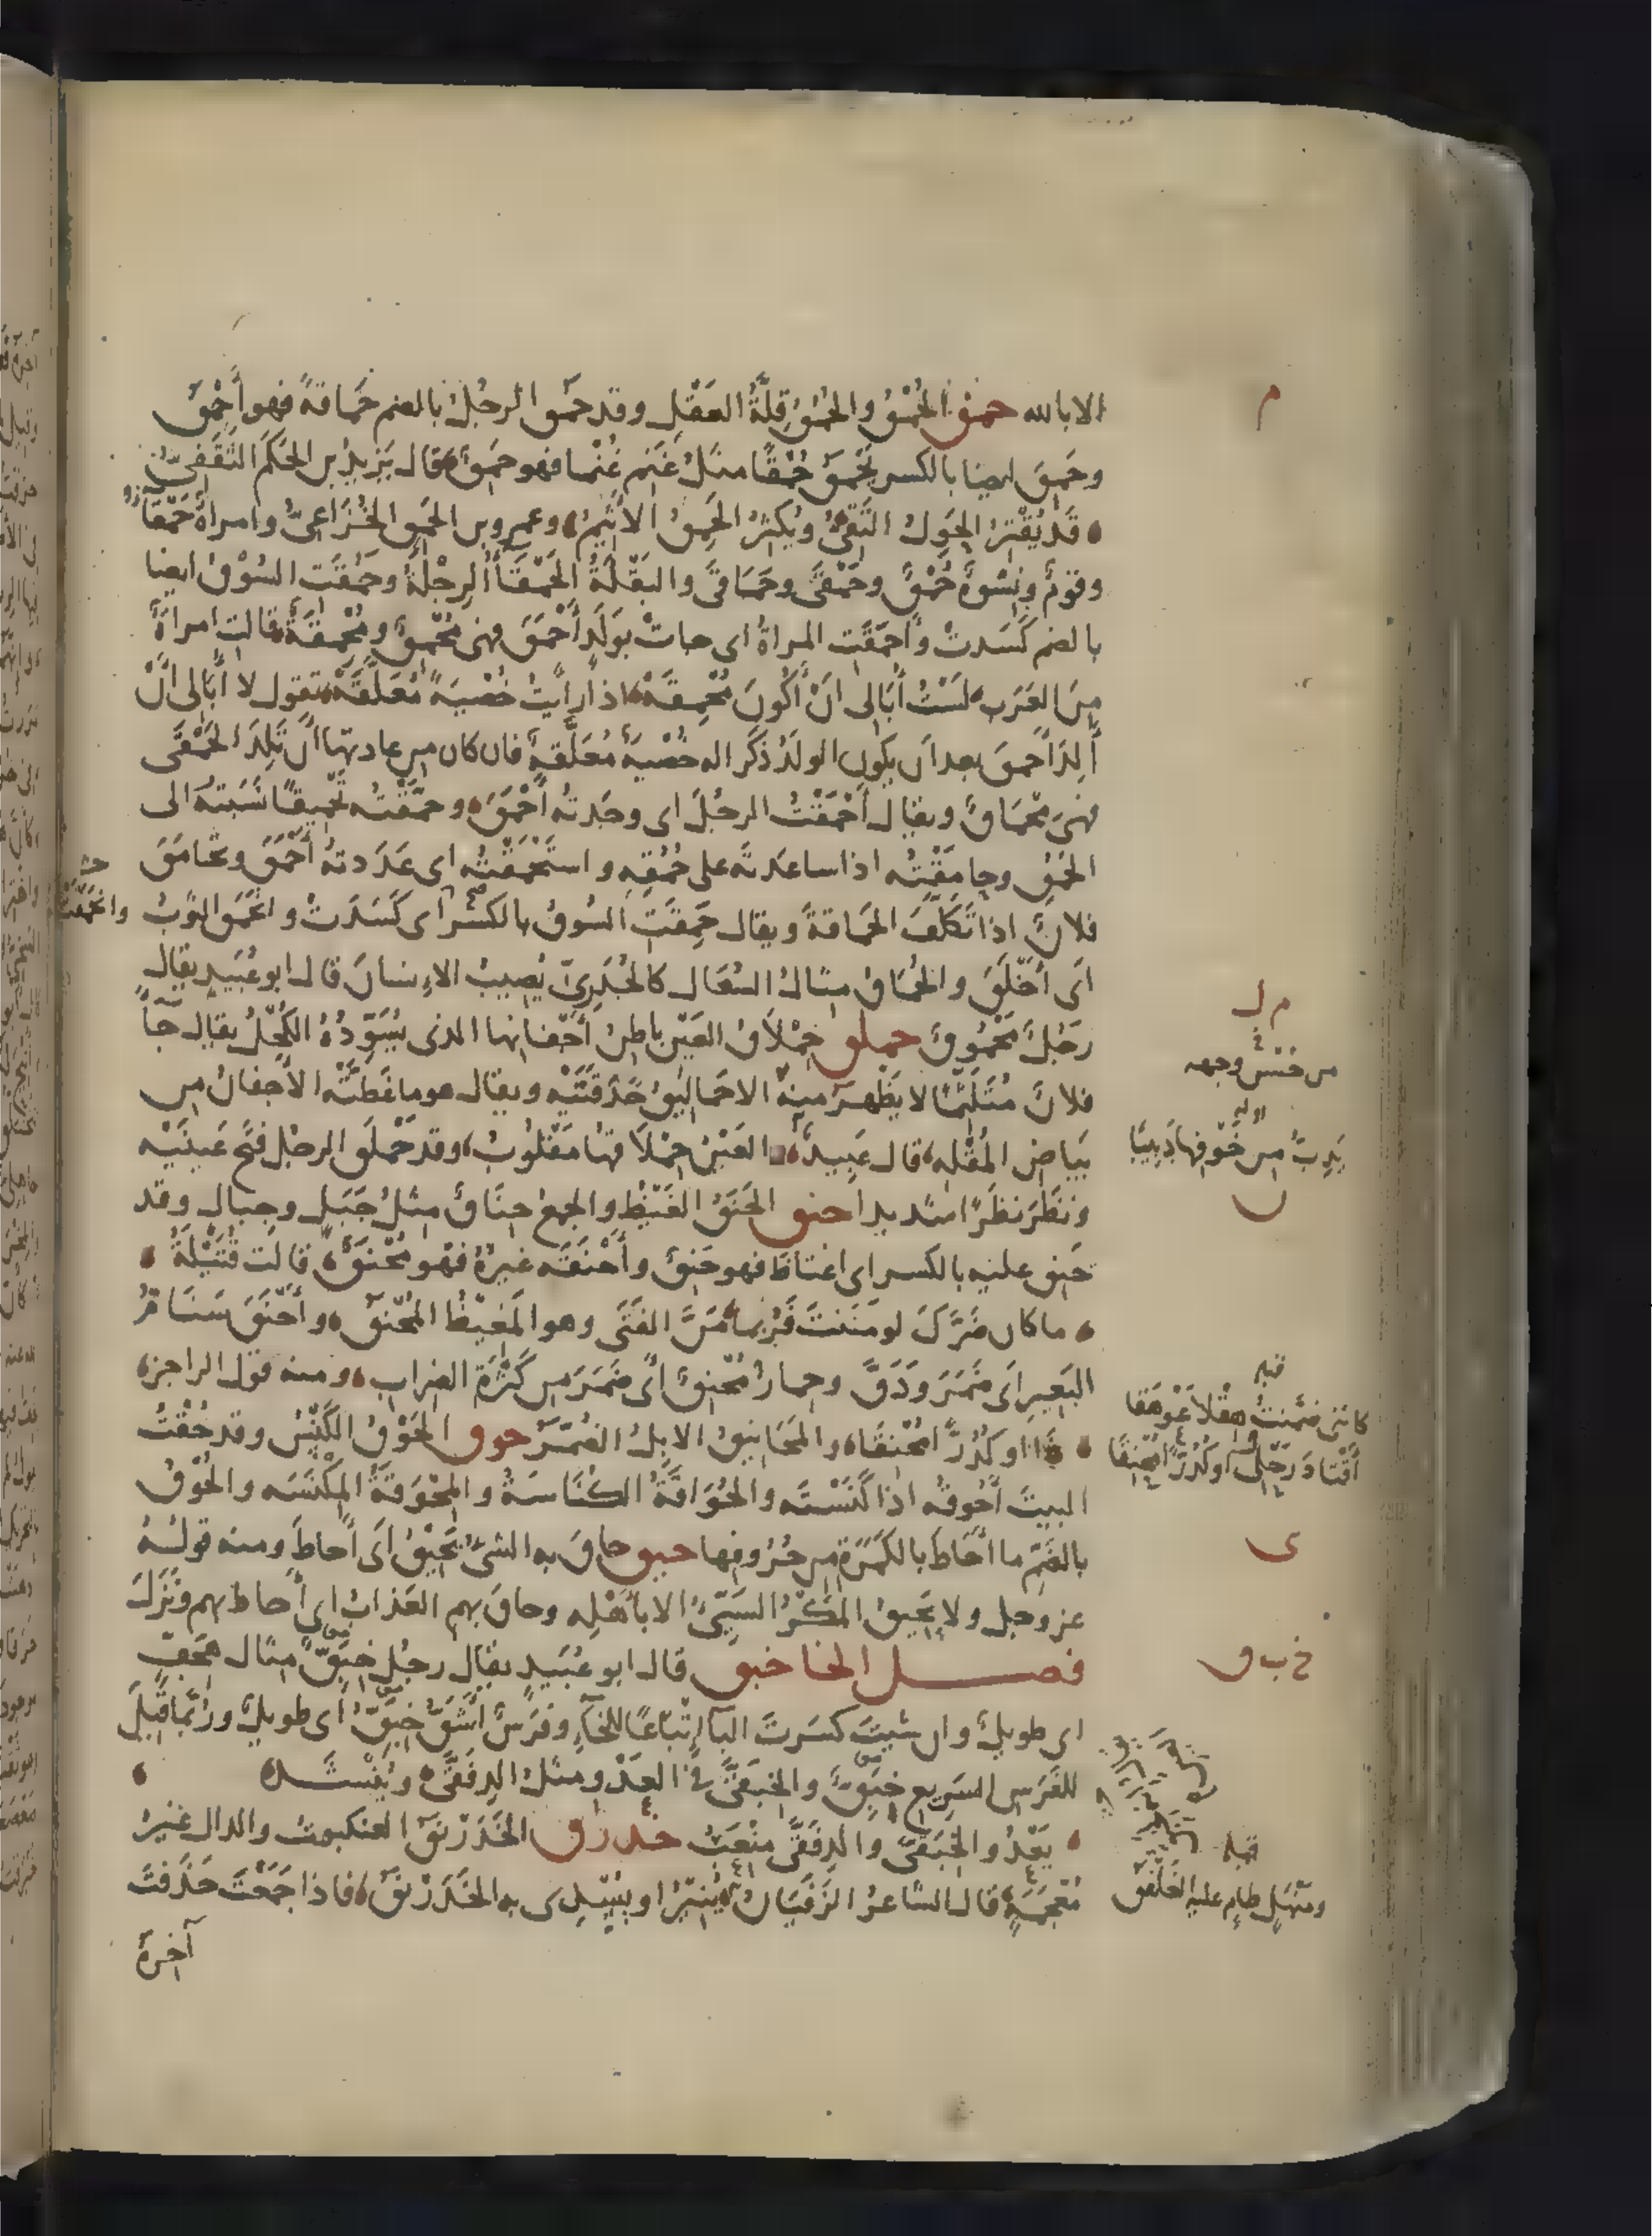 الا بالله حمق الحُمْقُ والحُمُقُ قِلَّةُ العَقْلِ وقد حمُق الرجُلُ بالضم حَمَاقةً فهو أَحْمَقُ
وحَمِقَ ايضا بالكسر يَحْمَقُ حُمْقًا مثلُ غَنِمَ غُنْما فهو حَمِقٌ قال يَزِيدُ بن الحَكَم الثَّقَفِيّ
قَدْ يُقْتِرُ الحَوِلُ التَّقِيُّ ويُكْثِرُ الحَمِقُ الاَثِيمُ وعمرو بن الحَمِق الخُزَاعِيُّ وامراةٌ حَمْقَآءُ
وقومٌ ونِسْوةٌ حُمْقٌ وحَمْقَى وحَمَاقَى والبَقْلَةُ الحَمْقَآءُ الرِجْلَةُ وحَمُقَت السُوْقُ ايضا
بالضم كَسَدتْ وأَحمَقَت المراةُ اى جات بوَلَدٍ أَحْمَقَ فهى مُحْمِقٌ ومُحْمِقَةٌ قالت امراةٌ
مِنَ العَرَب لَسْتُ أُبَالِى انْ أَكُونَ مُحْمِقَهْ اذا رأيتُ خُصْيَةً مُعَلَّقَهْ تقول لا أُبَالى أَنْ
أَلِدَ أَحمقَ بعد ان يكون الولَدُ ذَكَرا له خُصْيةٌ مُعَلَّقةٌ فان كان من عادتها أَنْ تَلِدَ الحَمْقَى
فهى مِحْمَاقٌ ويقال أَحْمَقْتُ الرجُلَ اى وجَدتُه أَحْمَقَ وحَمَّقْتُه تَحْمِيقًا نَسَبتُه الى
الحُمْقِ وحامَقْتُه اذا ساعَدتَه على حُمْقِهِ واستَحْمَقْتُه اى عَدَدتهُ أَحْمَقَ وتحَامَقَ
فلانٌ اذا تَكَلَّفَ الحَمَاقةَ ويقال حَمِقَتِ السُوقُ بالكسر اى كَسَدَتْ وانحَمَقَ الثوبُ
وانحَمَقَتْ
اى أَخْلَقَ والحُمَاقُ مثالُ السُّعَال كالجُدَرِىّ يُصِيبُ الاِنسانَ قال ابو عُبَيدٍ يقال
رَجُلٌ مَحْمُوقٌ حملق حِمْلاَقُ العَيْنِ باطِنُ أَجْفانِها الذى يُسَوِّدُهُ الكُحْلُ يقال جآءَ
فلانٌ مُتَلَثِّمًا لا يَظْهَرُ منه الا حَمَالِيقُ حَدَقَتَيْه ويقال هو ما غَطَّتْهُ الأجفانُ من
بَيَاضِ المُقْلَه قال عَبِيدٌ والعَيْنُ حِمْلاَقُها مَقْلُوبُ وقد حَمْلَقَ الرجُل فتَحَ عَينَيْه
ونَظَرَ نظَرًا شديدا حنق الحَنَقُ الغَيْظُ والجمعُ حِنَاقٌ مِثلُ جَبَلٍ وجِبالٍ وقد
حَنِقَ عليه بالكسر اى اغتاظ فهو حَنِقٌ وأَحْنَقَه غيرُهُ فهو مُحْنَقٌ قالت قُتَيْلَةُ
ما كان ضَرَّكَ لو مَنَنتَ فَرُبما مَنَّ الفَتَى وهو المَغِيْظُ المُحْنَقُ وأَحْنَقَ سَنَامُ
البَعيرِ اى ضَمَرَ ودَقَّ وحِمارٌ مُحْنِقٌ اى ضَمَرَ من كَثْرَةِ الضراب ومنه قول الراجزِ
او كُدُرًّا مُحْنِقَا والمَحَانِيقُ الابِلُ الضُمَّرُ حوق الحَوْقُ الكَنْسُ وقد حُقْتُ
البيتَ أَحُوقُه اذا كَنَسْتَه والحُوَاقَةُ الكُنَاسَةُ والمِحْوَقَةُ المِكْنَسَه والحُوْقُ
بالضَمّ ما أحَاط بالكَمَرَةِ من حُرُوفِها حيق حاقَ به الشىُ يَحِيْقُ اى أَحاطَ ومنه قولُهُ
عز وجل ولا يَحِيقُ المَكْرُ السَيِّىُ الا بأهْلِه وحاقَ بهم العَذابُ اى أَحاط بهم ونَزَلَ
فصل الخا خبق قال ابو عُبَيدٍ يقال رجُلٌ خِبَقٌّ مثال هِجَفٍّ
اى طويلٌ وان شيتَ كسَرتَ البآءَ اِتْباعًا للخآءِ وفَرَسٌ أَشَقُّ خِبَقٌّ اى طويلٌ ورُبَّما قِيلَ
للفَرَسِ السَرِيعِ خِبَقٌّ والخِبِقَّى فى العَدْوِ مثلُ الدِفِقَّى ويُنْشَدُ
يَعْدُو الخِبِقَّى والدِفِقَّى مِنْعَبُ خدرق الخَدَرْنَقُ العنكبوت والدال غيرُ
مُعْجَمَةٍ قال الشاعرُ الزَفَيَانُ يُنِيْرُ او يُسْدِى به الخَدَرْنَقُ فاذا جَمَعْتَ حَذَفتَ
آخِرَهُ
م
م ل
من خَشْىِ وجهه
يَدِبُّ من خَوْفِها دَبِيبًا
ن
قبله
كانّنى ضمّنتُ هِقْلاً عَوْهَقَا
أَقْتَادَ رَحْلِى او كُدُرًّا مُحْنِقَا
ى
خ ب ق
قبله
ومَنْهَلٍ طامٍ عليه الغَلْفَقُ